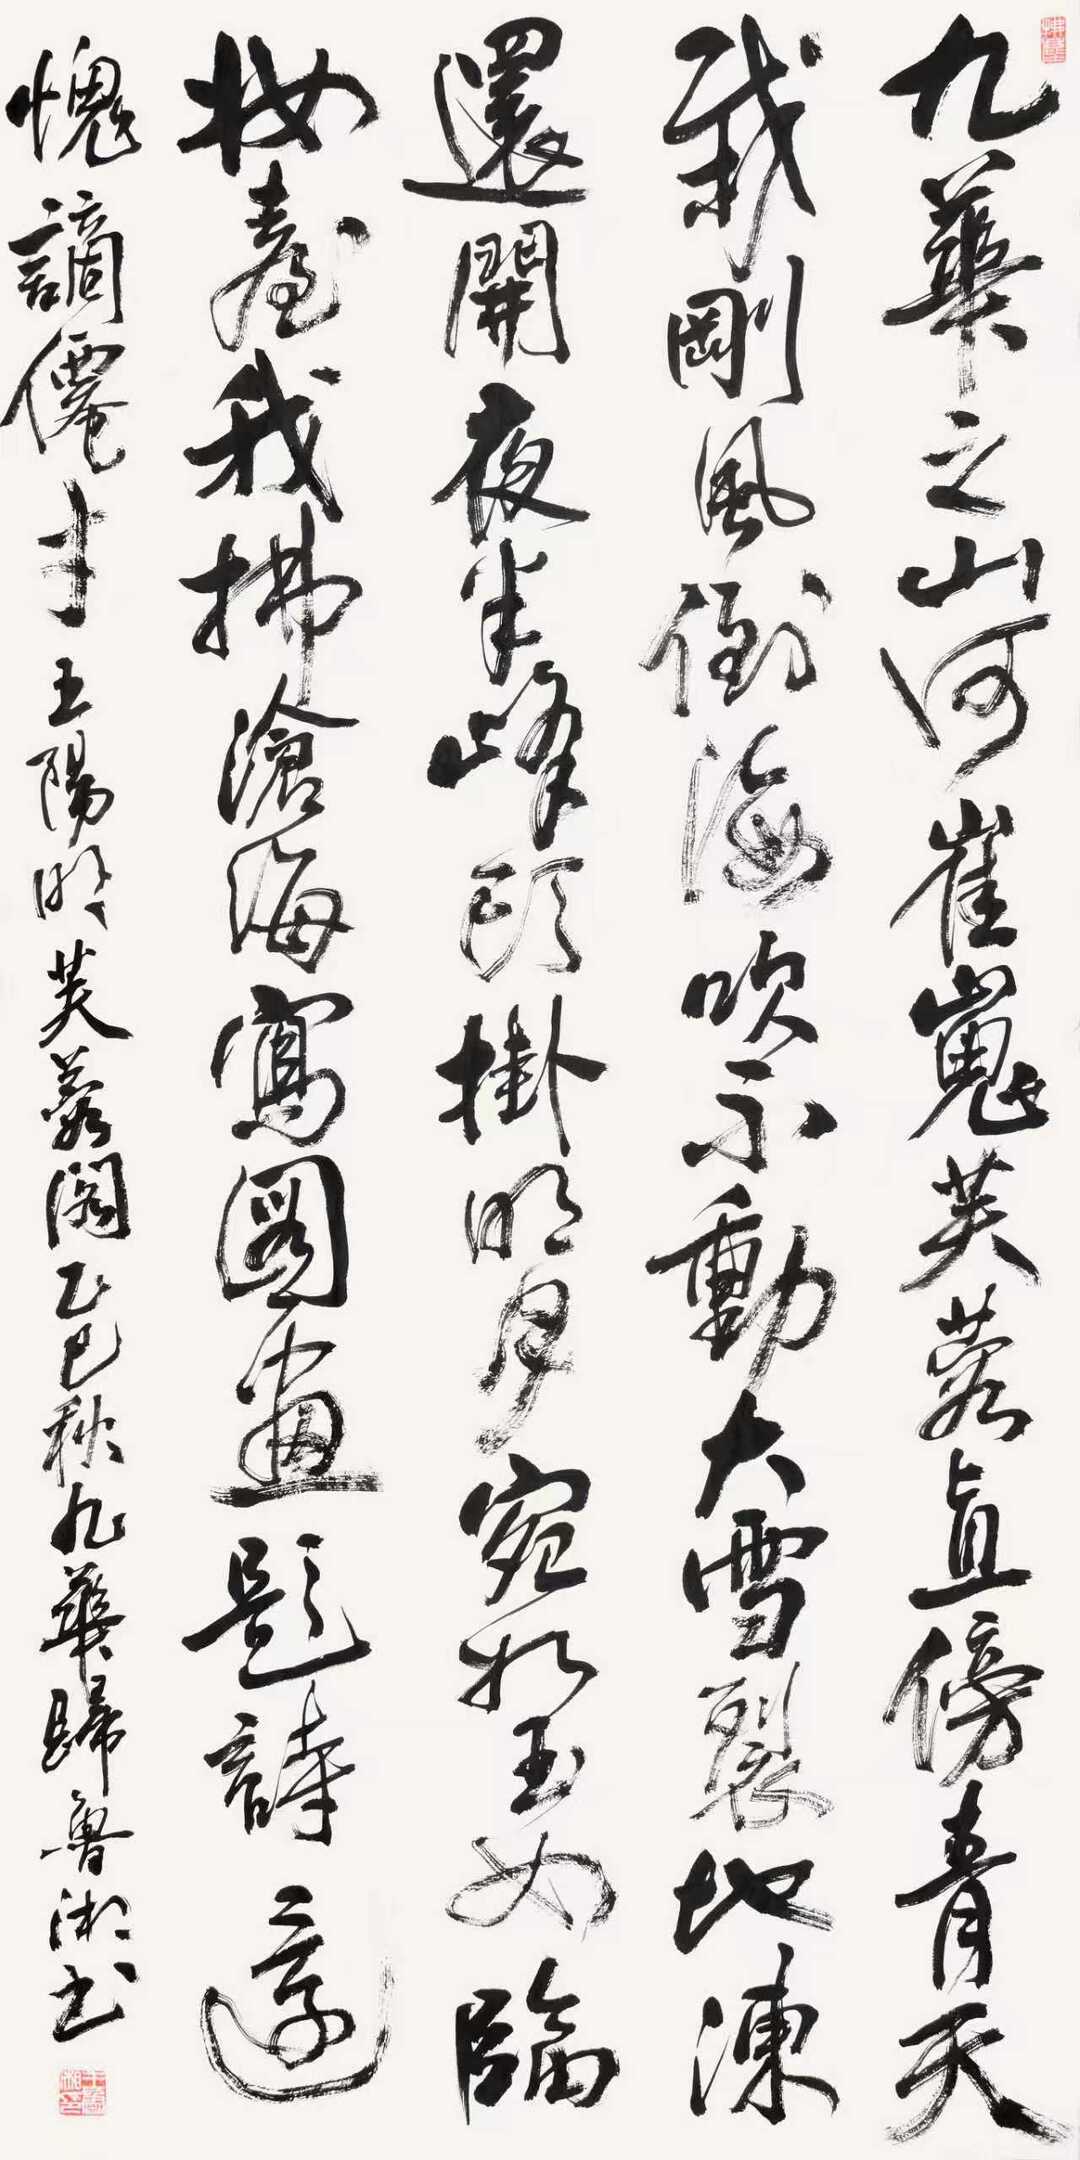 九華之山何崔嵬芙蓉直傍青天
栽剛風倒海吹不動大雪裂地凍
還開夜半峰頭掛明月宛如玉女臨
妝臺我拂滄海寫圖畫題詩還
愧謫僊才 王陽明芙蓉閣乙巳秋九華歸魯湘書
王魯湘印